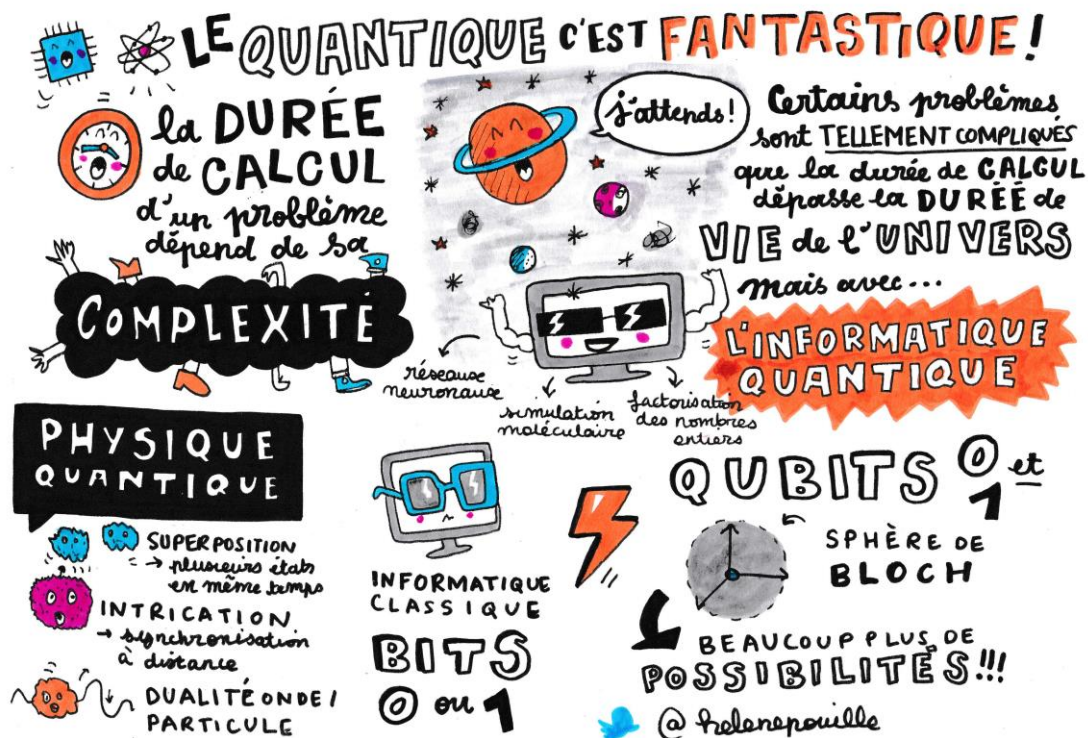 LE QUANTIQUE C'EST FANTASTIQUE!
la DURÉE
de CALCUL
d'un problème
dépend de sa
COMPLEXITÉ
j'attends!
Certains problèmes
sont TELLEMENT COMPLIQUÉS
que la durée de CALCUL
dépasse la DURÉE de
VIE de l'UNIVERS
mais avec...
L'INFORMATIQUE
QUANTIQUE
réseaux
neuronaux
simulation
moléculaire
factorisation
des nombres
entiers
PHYSIQUE
QUANTIQUE
SUPERPOSITION
→ plusieurs états
en même temps
INTRICATION
→ synchronisation
à distance
DUALITÉ ONDE/
PARTICULE
INFORMATIQUE
CLASSIQUE
BITS
0 ou 1
QUBITS 0 et
1
SPHÈRE DE
BLOCH
BEAUCOUP PLUS DE
POSSIBILITÉS!!!
@helenepouille